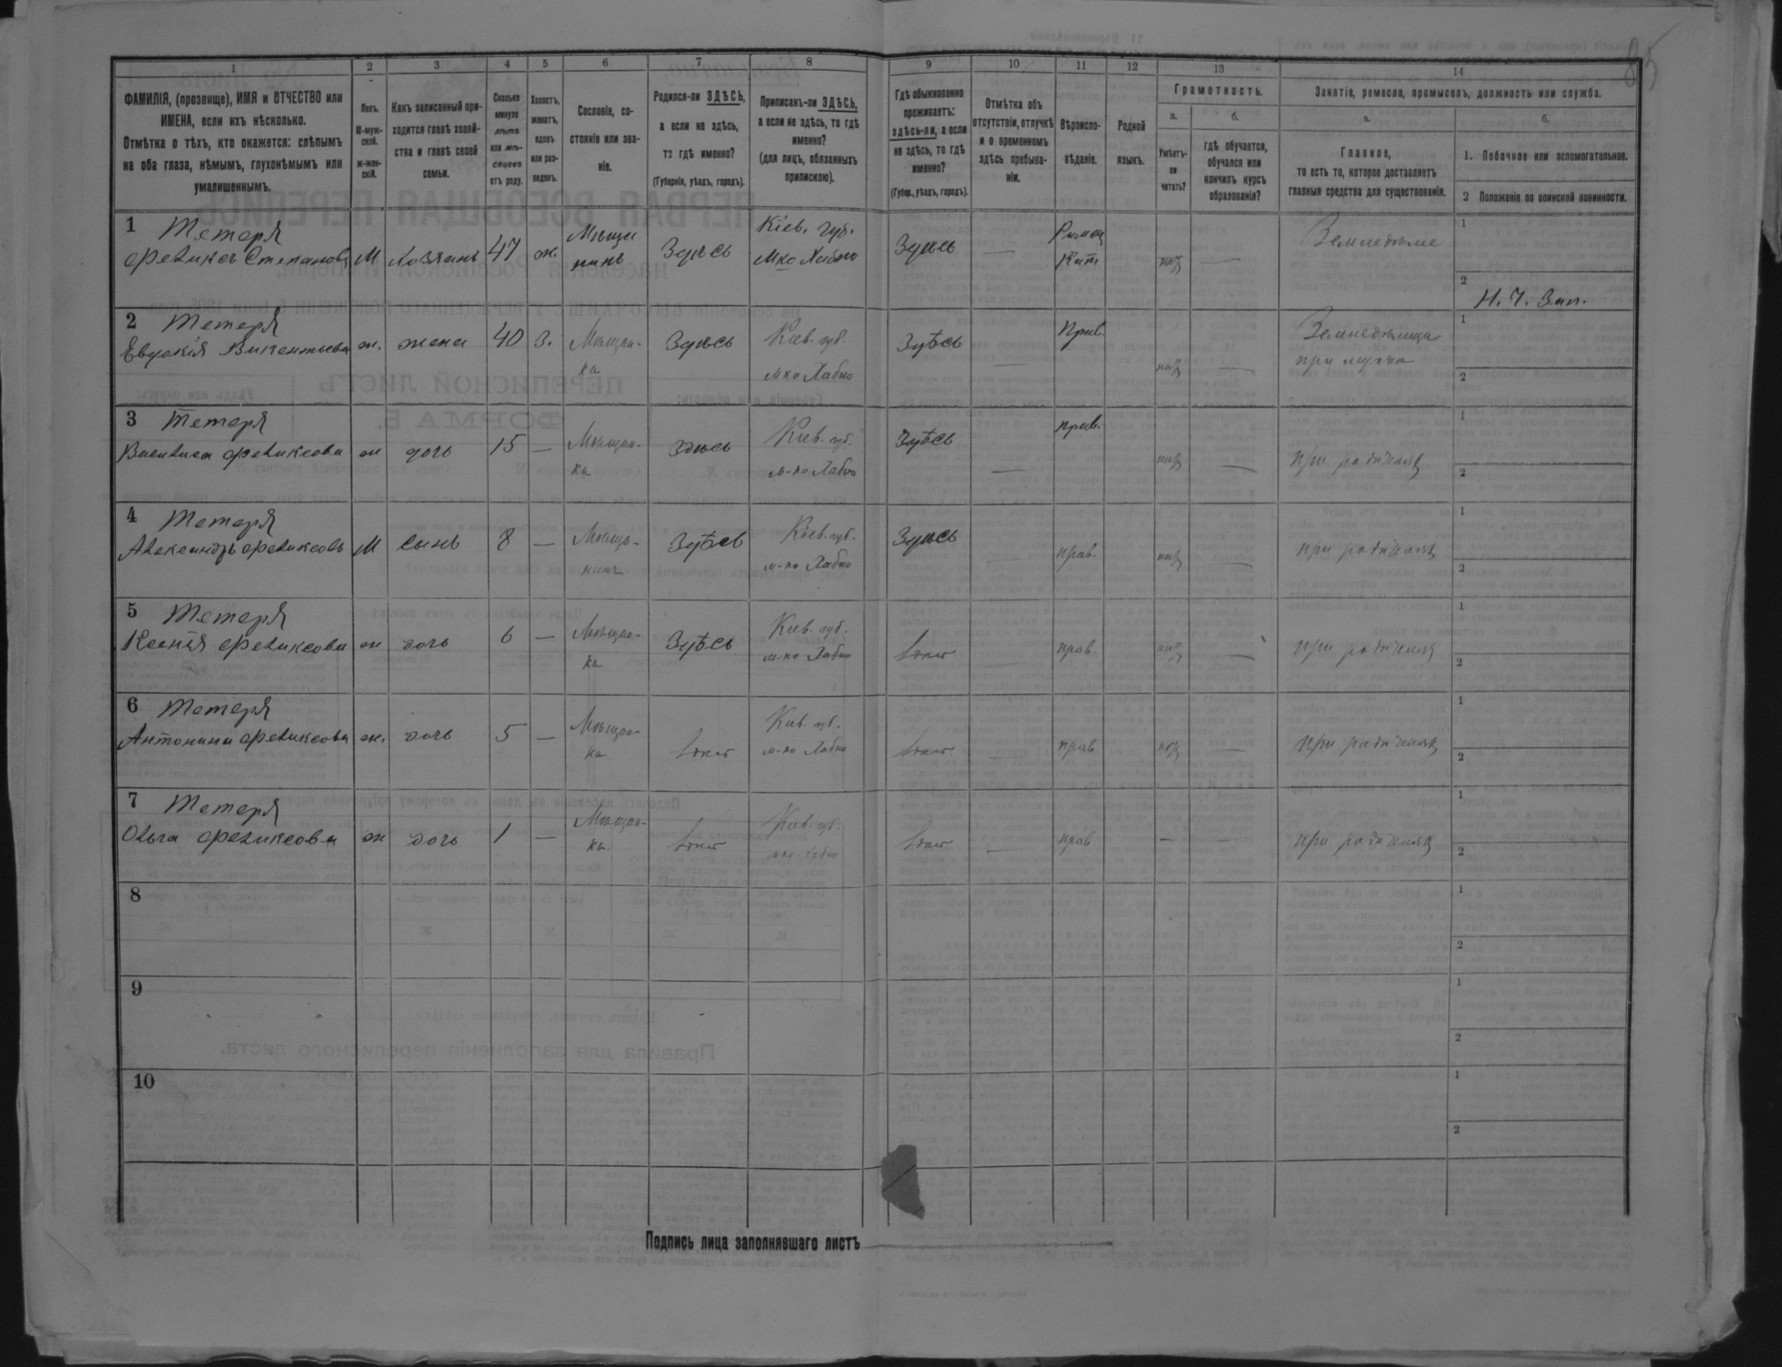 85
1 2 3 4 5 6 7 8 9 10 11 12 13 14
ФАМИЛІЯ, (прозвище), ИМЯ и ОТЧЕСТВО или
ИМЕНА, если ихъ нѣсколько.
Отмѣтка о тѣхъ, кто окажется: слѣпымъ
на оба глаза, нѣмымъ, глухонѣмымъ или
умалишеннымъ.
Полъ.
М-муж-
ской.
ж-жен-
скій.
Какъ записанный при-
ходится главѣ хозяй-
ства и главѣ своей
семьи.
Сколько
минуло
лѣтъ
или мѣ-
сяцевъ
отъ роду.
Холостъ,
женатъ,
вдовъ
или раз-
веденъ.
Сословіе, со-
стояніе или зва-
ніе.
Родился-ли ЗДѢСЬ,
а если не здѣсь,
то гдѣ именно?
(Губернія, уѣздъ, городъ).
Приписанъ-ли ЗДѢСЬ,
а если не здѣсь, то гдѣ
именно?
(для лицъ, обязанныхъ
припискою).
Гдѣ обыкновенно
проживаетъ:
здѣсь-ли, а если
не здѣсь, то гдѣ
именно?
(Губерн., уѣздъ, городъ).
Отмѣтка объ
отсутствіи, отлучкѣ
и о временномъ
здѣсь пребыва-
ніи.
Вѣроиспо-
вѣданіе.
Родной
языкъ.
Грамотность.
а.
Умѣетъ-
ли
читать?
б.
гдѣ обучается,
обучался или
кончилъ курсъ
образованія?
Занятіе, ремесло, промыселъ, должность или служба.
а.
Главное,
то есть то, которое доставляетъ
главныя средства для существованія.
б.
1. Побочное или вспомогательное.
2 Положеніе по воинской повинности.
1 Тетеря
Феликсъ Степановъ М Хозяинъ 47 ж. Мѣща
нинъ Здѣсь Кіев. губ.
М-ко Хабно Здѣсь — Римск
Кат нѣт — Земледѣліе 1
2 Н. Ч. Зап.
2 Тетеря
Евдокія Викентьева ж. жена 40 з. Мѣщан-
ка Здѣсь Кіев. губ.
м-ко Хабно Здѣсь — Прав. нѣт — Земледѣлица
при мужѣ 1
2
3 Тетеря
Феликсова ж дочь 15 — Мѣщан-
ка здѣсь Кіев. губ.
м-ко Хабно Здѣсь — прав. нѣт — при родителяхъ 1
2
4 Тетеря
Александръ Феликсовъ М сынъ 8 — Мѣща-
нинъ Здѣсь Кіев. губ.
м-ко Хабно Здѣсь — прав. нѣт — при родителяхъ 1
2
5 Тетеря
Ксенія Феликсова ж дочь 6 — Мѣщан-
ка Здѣсь Кіев. губ.
м-ко Хабно — прав. нѣт — при родителяхъ 1
2
6 Тетеря
Антонина Феликсова ж. дочь 5 — Мѣщан-
ка Кіев. губ.
м-ко Хабно — прав нѣт — при родителяхъ 1
2
7 Тетеря
Ольга Феликсова ж дочь 1 — Мѣщан-
ка Кіев. губ.
м-ко Хабно — прав — — при родителяхъ 1
2
8 1
2
9 1
2
10 1
2
Подпись лица заполнявшаго листъ